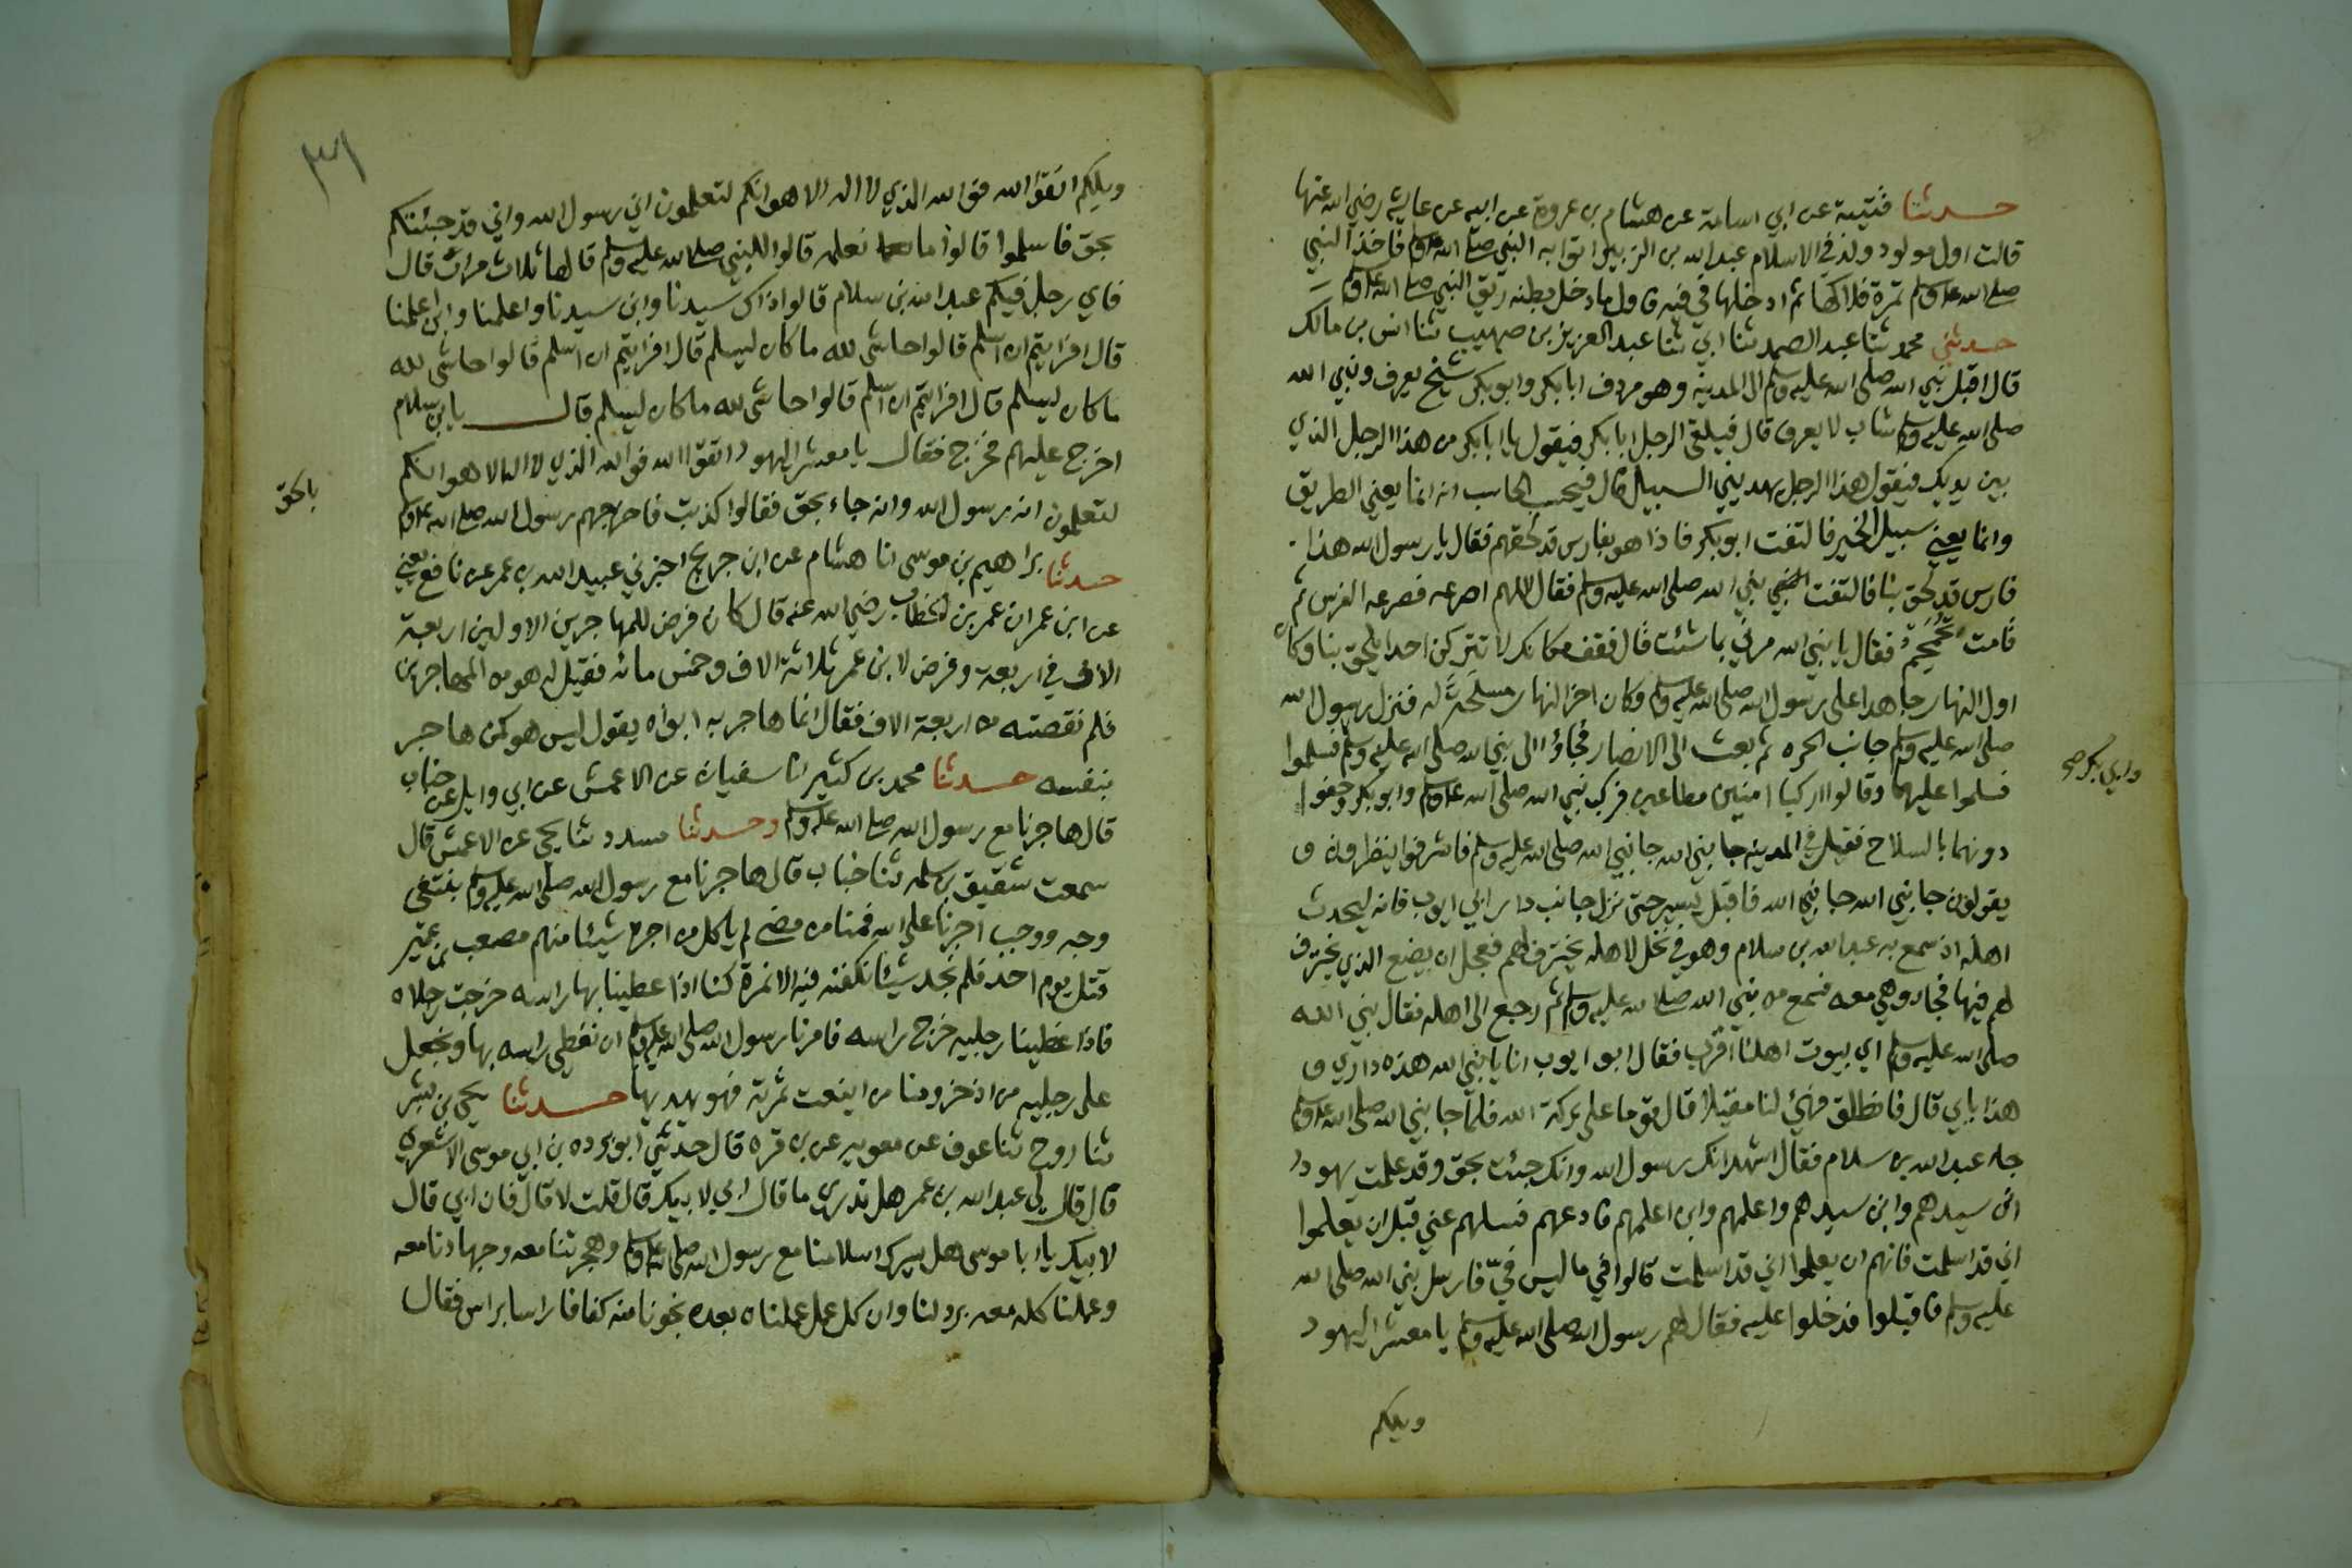 حدثنا قتيبة عن ابي اسامة عن هشام بن عروة عن ابيه عن عايشة رضي الله عنها
قالت اول مولود ولد في الاسلام عبد الله بن الزبير اتوا به النبي صلى الله عليه وسلم فاخذ النبي
صلى الله عليه وسلم تمرة فلاكها ثم ادخلها في فيه فاول ما دخل بطنه ريق النبي صلى الله عليه وسلم
حدثني محمد ثنا عبد الصمد ثنا ابي ثنا عبد العزيز بن صهيب ثنا انس بن مالك
قال اقبل نبي الله صلى الله عليه وسلم الى المدينة وهو مردف ابا بكر وابو بكر شيخ يعرف ونبي الله
صلى الله عليه وسلم شاب لا يعرف قال فيلقى الرجل ابا بكر فيقول يا ابا بكر من هذا الرجل الذي
بين يديك فيقول هذا الرجل يهديني السبيل قال فيحسب الحاسب انه انما يعني الطريق
وانما يعني سبيل الخير فالتفت ابو بكر فاذا هو بفارس قد لحقهم فقال يا رسول الله هذا
فارس قد لحق بنا فالتفت نبي الله صلى الله عليه وسلم فقال اللهم اصرعه فصرعه الفرس ثم
قامت تحمحم فقال يا نبي الله مرني بما شئت قال فقف مكانك لا تتركن احدا يلحق بنا وكان
اول النهار جاهدا على رسول الله صلى الله عليه وسلم وكان اخر النهار مسلحة له فنزل رسول الله
صلى الله عليه وسلم جانب الحره ثم بعث الى الانصار فجاؤا الى نبي الله صلى الله عليه وسلم فسلموا
وابي بكر صح
فسلموا عليهما وقالوا اركبا امنين مطاعين فركب نبي الله صلى الله عليه وسلم وابو بكر وحفوا
دونهما بالسلاح فقيل في المدينة جا نبي الله جا نبي الله صلى الله عليه وسلم فاشرفوا ينظرون و
يقولون جا نبي الله جا نبي الله فاقبل يسير حتى نزل جانب دار ابي ايوب فانه ليحدث
اهله اذ سمع به عبد الله بن سلام وهو في نخل لاهله يخترف لهم فعجل ان يضع الذي يخترف
لهم فيها فجاء وهي معه فسمع من نبي الله صلى الله عليه وسلم ثم رجع الى اهله فقال نبي الله
صلى الله عليه وسلم اي بيوت اهلنا اقرب فقال ابو ايوب انا يا نبي الله هذه داري و
هذا بابي قال فانطلق فهيئ لنا مقيلا قال قوما على بركة الله فلما جا نبي الله صلى الله عليه وسلم
جاء عبد الله بن سلام فقال اشهد انك رسول الله وانك جئت بحق وقد علمت يهود
اني سيدهم وابن سيدهم واعلمهم وابن اعلمهم فادعهم فسلهم عني قبل ان يعلموا
اني قد اسلمت فانهم ان يعلموا اني قد اسلمت قالوا في ما ليس فيّ فارسل نبي الله صلى الله
عليه وسلم فاقبلوا فدخلوا عليه فقال لهم رسول الله صلى الله عليه وسلم يا معشر اليهود
ويلكم
٣٦
ويلكم اتقوا الله فوالله الذي لا اله الا هو انكم لتعلمون اني رسول الله واني قد جئتكم
بحق فاسلموا قالوا ما نعلمه قالوا للنبي صلى الله عليه وسلم قالها ثلاث مرات قال
فاي رجل فيكم عبد الله بن سلام قالوا ذاك سيدنا وابن سيدنا واعلمنا وابن اعلمنا
قال افرايتم ان اسلم قالوا حاشى لله ما كان ليسلم قال افرايتم ان اسلم قالوا حاشى لله
ما كان ليسلم قال افرايتم ان اسلم قالوا حاشى لله ما كان ليسلم قال يا بن سلام
اخرج عليهم فخرج فقال يا معشر اليهود اتقوا الله فوالله الذي لا اله الا هو انكم
بالحق
لتعلمون انه رسول الله وانه جاء بحق فقالوا كذبت فاخرجهم رسول الله صلى الله عليه وسلم
حدثنا براهيم بن موسى انا هشام عن ابن جريج اخبرني عبيد الله بن عمر عن نافع يعني
عن ابن عمر ان عمر بن الخطاب رضي الله عنه قال كان فرض للمهاجرين الاولين اربعة
الاف في اربعة وفرض لابن عمر ثلاثة الاف وخمس مائه فقيل له هو من المهاجرين
فلم نقصته من اربعة الاف فقال انما هاجر به ابواه يقول ليس هو كمن هاجر
بنفسه حدثنا محمد بن كثير انا سفيان عن الاعمش عن ابي وايل عن خباب
قال هاجرنا مع رسول الله صلى الله عليه وسلم وحدثنا مسدد ثنا يحيى عن الاعمش قال
سمعت شقيق بن سلمه ثنا خباب قال هاجرنا مع رسول الله صلى الله عليه وسلم نبتغي
وجه ووجب اجرنا على الله فمنا من مضى لم ياكل من اجره شيئا منهم مصعب بن عمير
قتل يوم احد فلم نجد شيئا نكفنه فيه الا نمرة كنا اذا غطينا بها راسه خرجت رجلاه
فاذا غطينا رجليه خرج راسه فامرنا رسول الله صلى الله عليه وسلم ان نغطي راسه بها ونجعل
على رجليه من اذخر ومنا من اينعت ثمرته فهو يهديها حدثنا يحيى بن بشر
ثنا روح ثنا عوف عن معويه عن بن قره قال حدثني ابو برده بن ابي موسى الاشعري
قال قال لي عبد الله بن عمر هل تدري ما قال ابي لابيك قال قلت لا قال فان ابي قال
لابيك يا ابا موسى هل يسرك اسلامنا مع رسول الله صلى الله عليه وسلم وهجرتنا معه وجهادنا معه
وعملنا كله معه برد لنا وان كل عمل عملناه بعده نجونا منه كفافا راسا براس فقال